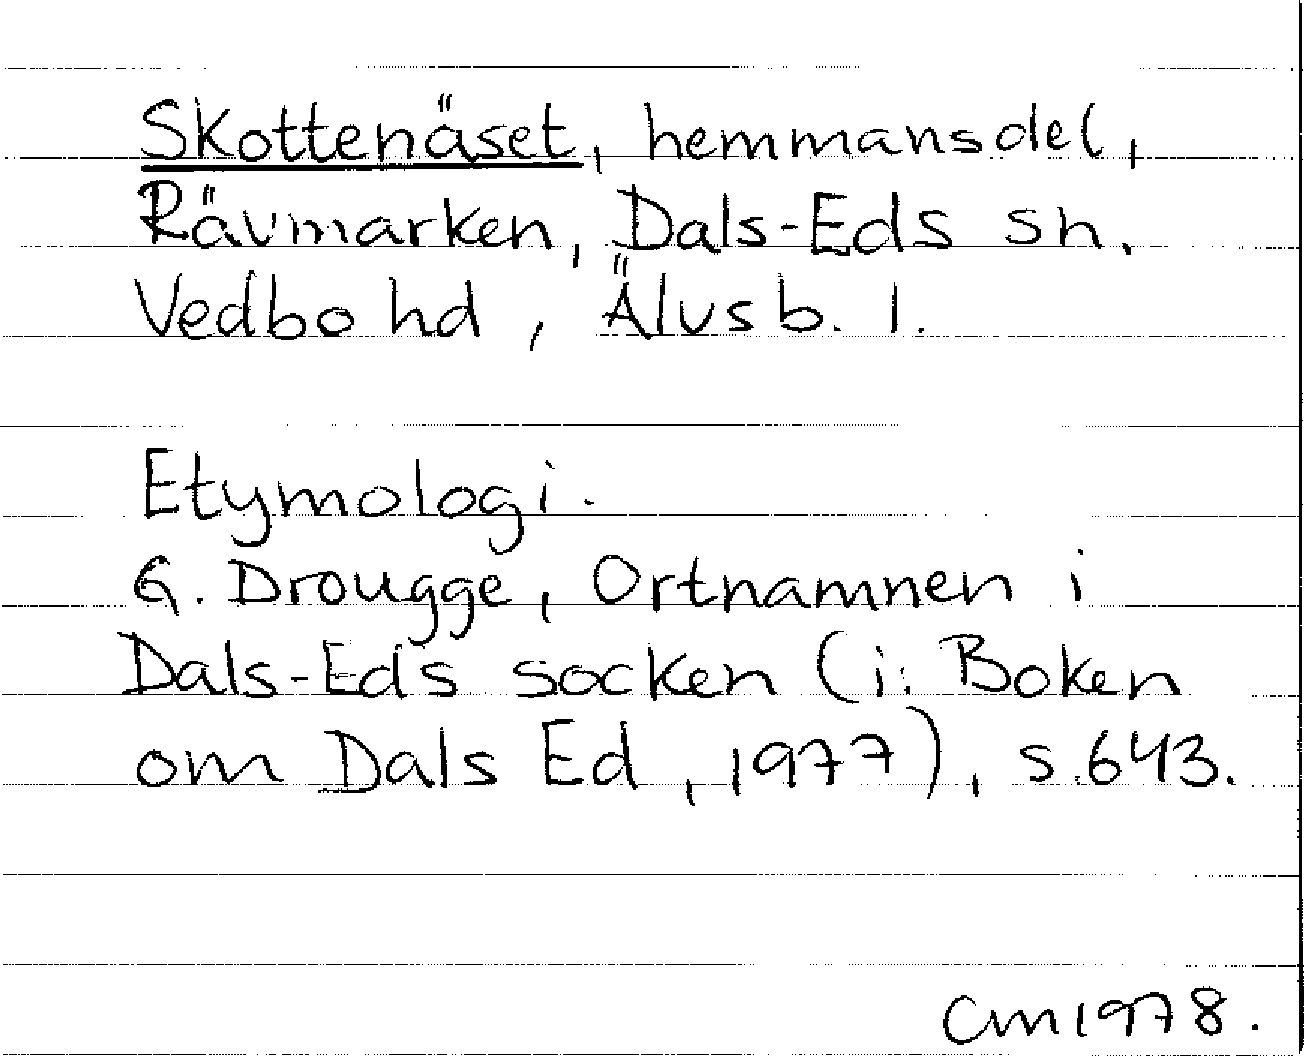 Skottenäset, hemmansdel,
Rävmarken, Dals-Eds sn,
Vedbo hd, Älvsb. l.
Etymologi.
G. Drougge, Ortnamnen i
Dals-Eds socken (i: Boken
om Dals Ed, 1977), s. 643.
Cm 1978.